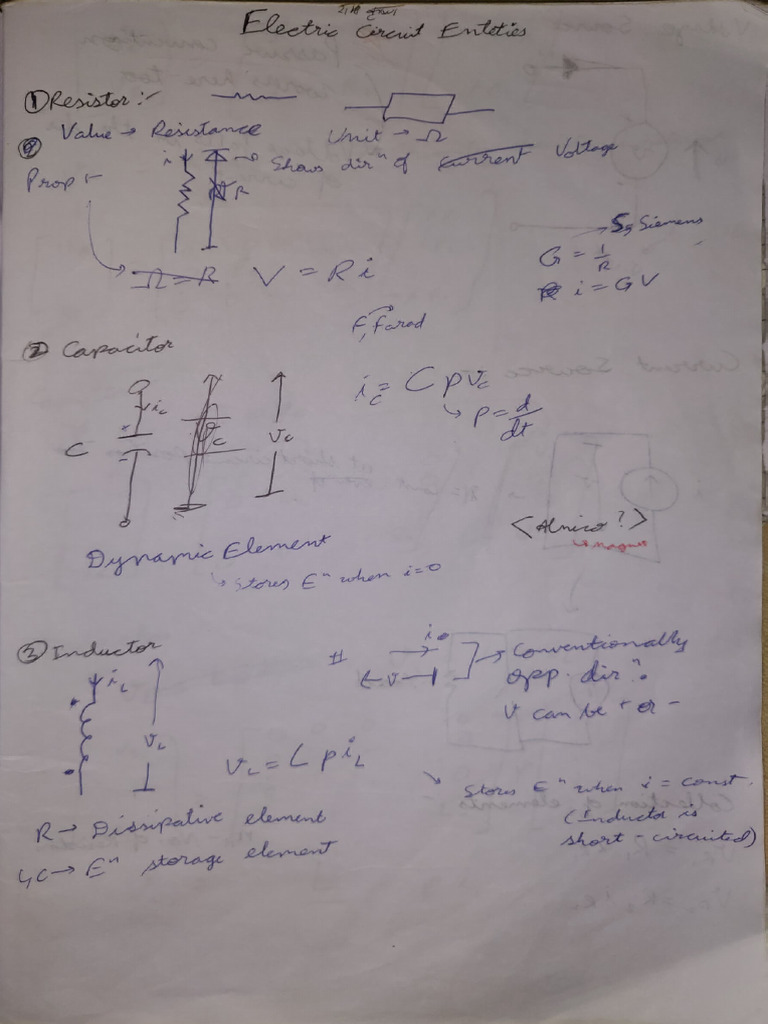 Electric Circuit Enteties
① Resistor :-
Value → Resistance
Unit → Ω
i
R
→ Shows dirⁿ of current Voltage
Prop :-
Ω = R
V = R i
→ S, Siemens
G = 1/R
i = G V
F, Farad
② Capacitor
C
i_c
v_c
v_c
i_c = C p v_c
↳ p = d/dt
<Alnico?>
Dynamic Element
↳ Stores Eⁿ when i=0
③ Inductor
i_L
v_L
v_L = L p i_L
#
i
v
→ Conventionally
opp. dirⁿ.
V can be + or -
↘ Stores Eⁿ when i = const.
(Inductor is
short-circuited)
R → Dissipative element
L,C → Eⁿ storage element